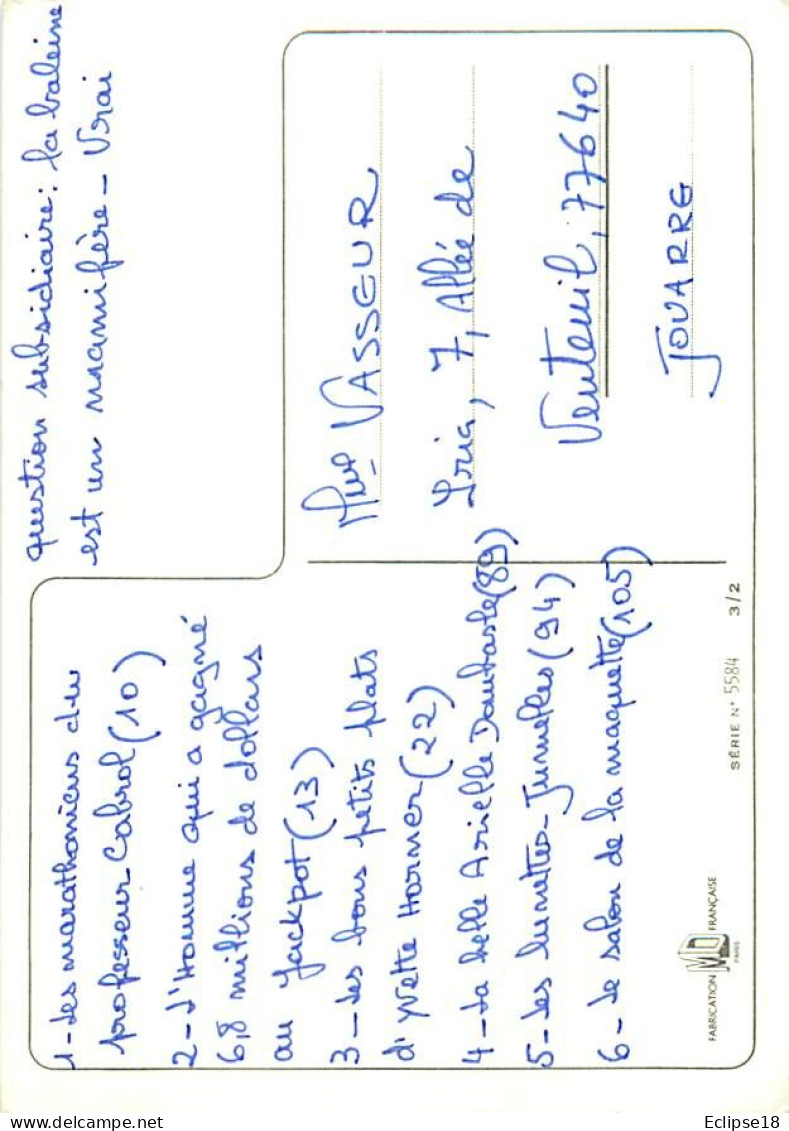 question subsidiaire : la baleine
est un mammifère - Vrai
1 - Les marathoniens du
professeur Cabrol (10)
2 - L'Homme qui a gagné
6,8 millions de dollars
au Jackpot (13)
3 - Les bons petits plats
d'Yvette Horner (22)
4 - La belle Arielle Dombasle (89)
5 - Les lunettes-Jumelles (94)
6 - Le salon de la maquette (105)
Mme VASSEUR
Iria, 7, Allée de
Venteuil, 77640
JOUARRE
SÉRIE N° 5584 3/2
FABRICATION MD FRANÇAISE
PARIS
Eclipse18